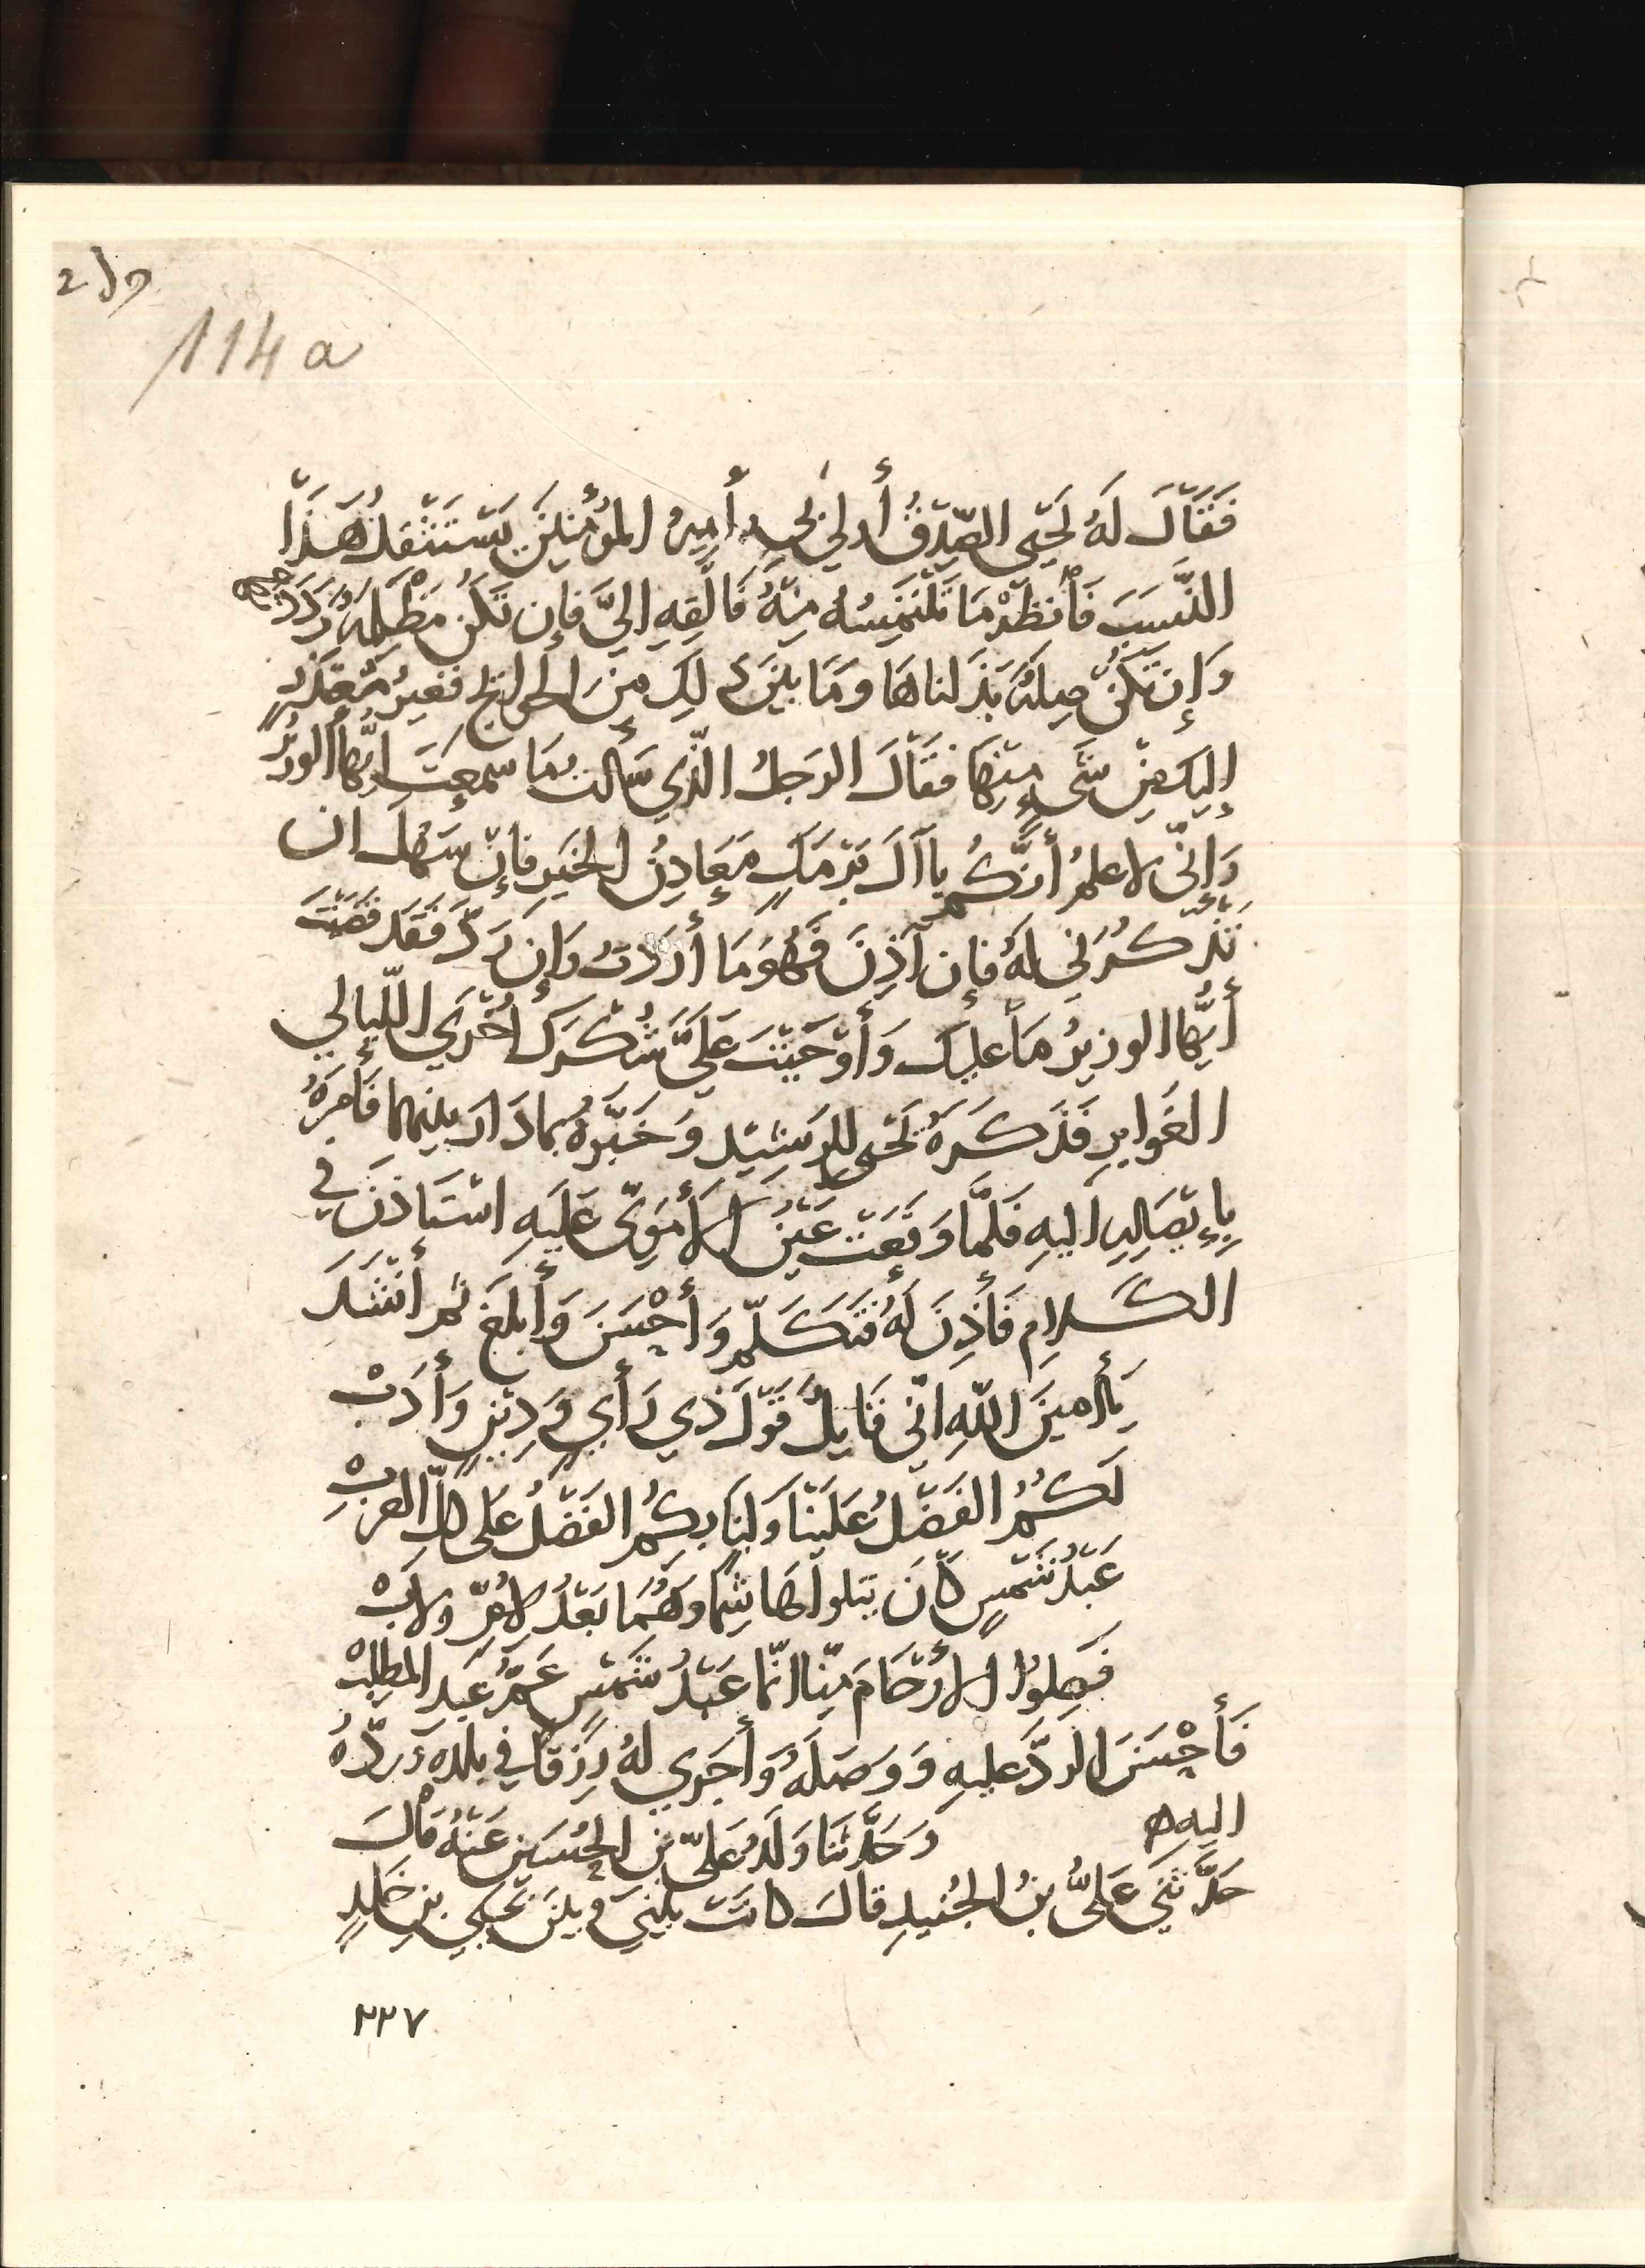 114 a
فَقَالَ لَهُ يَحْيَى الصِّدْقُ أَولى بِي أَمِيرُ المُؤْمِنِينَ يَسْتَثْقِلُ هَذَا
النَّسَبَ فَانْظُرْ مَا تَلْتَمِسُهُ مِنْهُ فَالْقِهِ إِلَيَّ فإِن تَكُن مَظْلِمَةً رَدَدْنَاهَا
وَإِن تَكُنْ صِلَةً بَذَلناهَا وَمَا بَيْنَ ذَلِكَ مِنَ الحَوائِجِ فَغَيرُ مُتَعَذِّرٍ
إِليكَ مِنْ شَيْءٍ مِنْهَا فقَالَ الرَجلُ الّذي سَأَلت بِمَا سمعتَ أيّها الوزيرُ
وَإِنِّي لاعلمُ أَنَّكُم ياآلَ بَرْمَكٍ مَعَادِنُ الخَيرِ فإِنْ سَهُلَ ان
تَذْكُرَنِي لَهُ فإِن آذِنَ فَهُوَ مَا أَرَدتُ وَإِن رَدَّ فَقَد قَضَيْتَ
أَيُّهَا الوزيرُ مَا عَلَيكَ وَأَوْجَبْتَ عَلَيَّ شُكْرَكَ أُخْرَي اللّيالي
الغَوابِرِ فَذَكَرَهُ يَحْيى لِلرَشِيْدِ وَخَبَّرَهُ بمادَارَ بينهما فَأَمَرَهُ
بِإِيْصَالِهِ اليهِ فَلَمَّا وَقَعَتْ عَيْنُ الأُمَوِيّ عَلَيهِ اسْتَاذَنَ في
الكَلامِ فَأَذِنَ لَهُ فَتَكَلَّمَ وَأَحْسَنَ وَأَبلَغَ ثم أَنْشَدَ
يَا أَمينَ اللّهِ انّي قايِلٌ قَوْلَ ذي رَأيٍ وَدِيْنٍ وَأَدَبْ
لَكُمُ الفَضْلُ عَلَيْنَا وَلَنَا بِكُمُ الفَضْلُ عَلى كلِّ العَرَبْ
عَبْدُ شَمْسٍ كَانَ يتلوا هَاشِمًا وَهُمَا بَعْدُ لأُمٍّ ولأبْ
فَصِلُوا الأَرْحَامَ مِنّا انّما عَبْدُ شَمْسٍ عَمُّ عَبدِ المطلبْ
فَأَحْسَنَ الردَّ عليهِ وَوَصَلَهُ وَأَجَرِي لَهُ رِزْقًا في بلدِهِ وَرَدَّهُ
اليهِ ه وَحَدَّثَنَا وَلَدُ عَلِيّ بنِ الحُسَينِ عَنْهُ قَالَ
حَدَّثَنِي عَلِيُّ بنُ الجُنَيدِ قالَ كانَتْ بَيْنِي وَبيْنَ يَحْيَي بنِ خَالِدٍ
٢٢٧